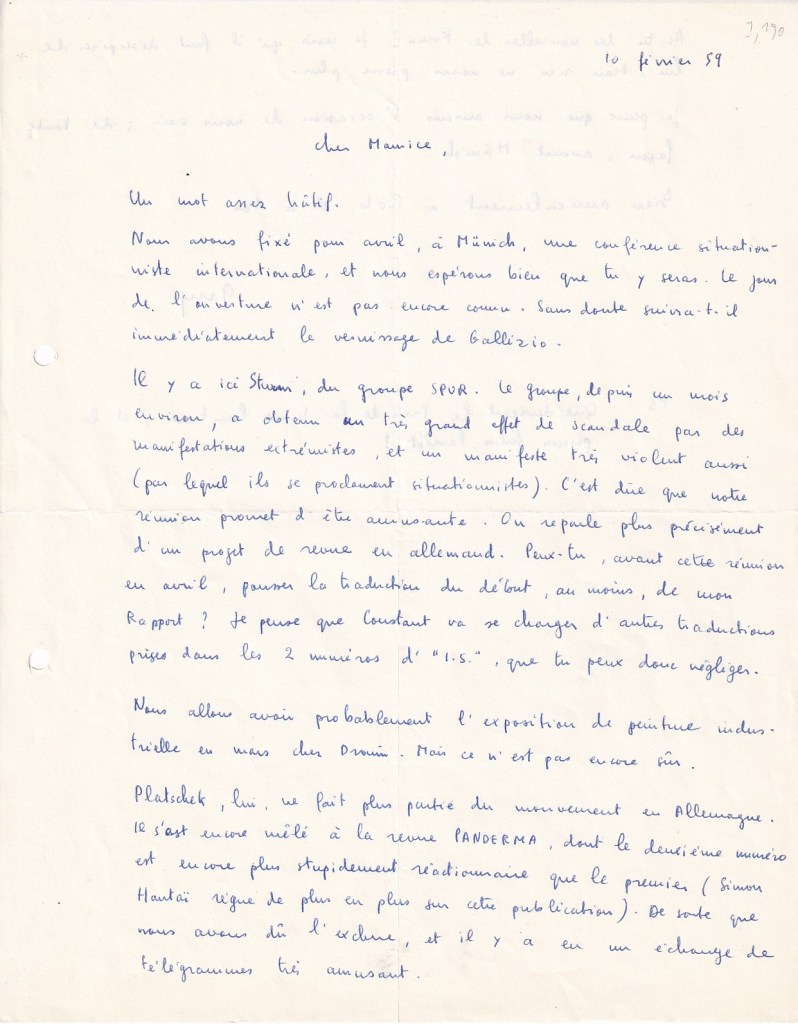 I, 190
10 février 59
Cher Maurice,
Un mot assez hâtif.
Nous avons fixé pour avril, à Münich, une conférence situation-
niste internationale, et nous espérons bien que tu y seras. Le jour
de l'ouverture n'est pas encore connu. Sans doute suivra-t-il
immédiatement le vernissage de Gallizio.
Il y a ici Sturm, du groupe SPUR. Le groupe, depuis un mois
environ, a obtenu un très grand effet de scandale par des
manifestations extrémistes, et un manifeste très violent aussi
(par lequel ils se proclament situationnistes). C'est dire que notre
réunion promet d'être amusante. On reparle plus précisément
d'un projet de revue en allemand. Peux-tu, avant cette réunion
en avril, pousser la traduction du début, au moins, de mon
Rapport ? Je pense que Constant va se charger d'autres traductions
prises dans les 2 numéros d'"I.S.", que tu peux donc négliger.
Nous allons avoir probablement l'exposition de peinture indus-
trielle en mars chez Drouin. Mais ce n'est pas encore sûr.
Platschek, lui, ne fait plus partie du mouvement en Allemagne.
Il s'est encore mêlé à la revue PANDERMA, dont le deuxième numéro
est encore plus stupidement réactionnaire que le premier (Simon
Hantaï règne de plus en plus sur cette publication). De sorte que
nous avons dû l'exclure, et il y a eu un échange de
télégrammes très amusant.